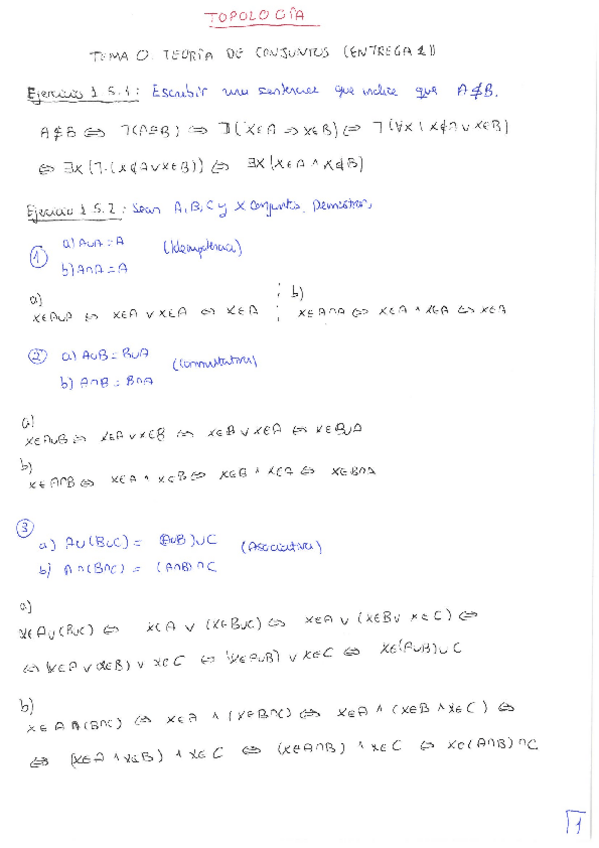 TOPOLOGÍA
TEMA 0. TEORÍA DE CONJUNTOS (ENTREGA 1)
Ejercicio 1.5.1: Escribir una sentencia que indice que A⊄B.
A⊄B ⇔ ⅂(A⊂B) ⇔ ⅂(x∈A ⇒ x∈B) ⇔ ⅂(∀x | x∉A ∨ x∈B)
⇔ ∃x (⅂(x∉A ∨ x∈B)) ⇔ ∃x (x∈A ∧ x∉B)
Ejercicio 1.5.2: Sean A, B, C y X conjuntos. Demostrar,
① a) A∪A = A (Idempotencia)
b) A∩A = A
a) b)
x∈A∪A ⇔ x∈A ∨ x∈A ⇔ x∈A x∈A∩A ⇔ x∈A ∧ x∈A ⇔ x∈A
② a) A∪B = B∪A (Conmutativa)
b) A∩B = B∩A
a)
x∈A∪B ⇔ x∈A ∨ x∈B ⇔ x∈B ∨ x∈A ⇔ x∈B∪A
b)
x∈A∩B ⇔ x∈A ∧ x∈B ⇔ x∈B ∧ x∈A ⇔ x∈B∩A
③
a) A∪(B∪C) = (A∪B)∪C (Asociativa)
b) A∩(B∩C) = (A∩B)∩C
a)
x∈A∪(B∪C) ⇔ x∈A ∨ (x∈B∪C) ⇔ x∈A ∨ (x∈B ∨ x∈C) ⇔
⇔ (x∈A ∨ x∈B) ∨ x∈C ⇔ (x∈A∪B) ∨ x∈C ⇔ x∈(A∪B)∪C
b)
x∈A∩(B∩C) ⇔ x∈A ∧ (x∈B∩C) ⇔ x∈A ∧ (x∈B ∧ x∈C) ⇔
⇔ (x∈A ∧ x∈B) ∧ x∈C ⇔ (x∈A∩B) ∧ x∈C ⇔ x∈(A∩B)∩C
1